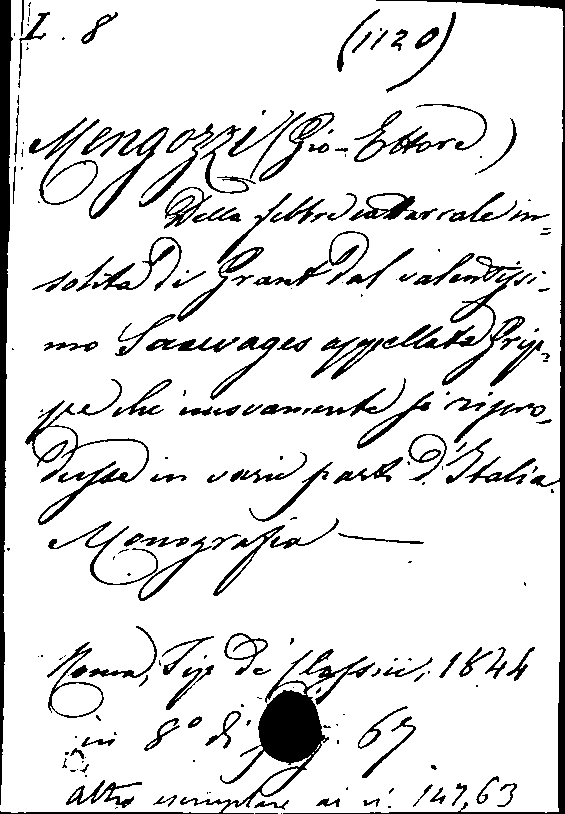 I. 8 (1120)
Mengozzi (Gio-Ettore)
Della febbre catarrale in=
solita di Grant dal valentissi-
mo Sauvages appellata Grip-
pe che nuovamente si ripro-
dusse in varie parti d'Italia.
Monografia —
Roma, Tip de' Classici, 1844
in 8° di pag. 67
altro esemplare ai n.' 147,63